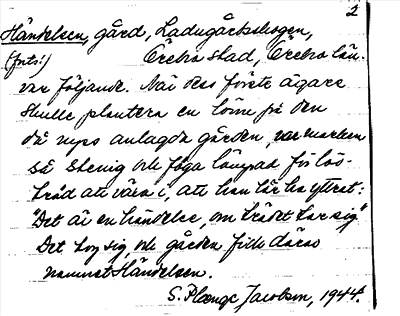 2
Händelsen, gård, Ladugårdsskogen,
(forts.) Örebro stad, Örebro län.
var följande. När dess förste ägare
skulle plantera en lönn på den
då nyss anlagda gården, var marken
så stenig och föga lämpad för löv-
träd att växa i, att han lär ha yttrat:
"Det är en händelse, om trädet tar sig"
Det tog sig, och gården fick därav
namnet Händelsen.
S. Plænge Jacobson, 1944.